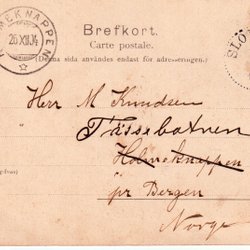 EKNAPPEN
26 XII.04
Brefkort.
Carte postale.
(Denna sida användes endast för adresseringen.)
SLÖ
Herr M Knudsen
Tässebotnen
Holmeknappen
pr Bergen
Norge